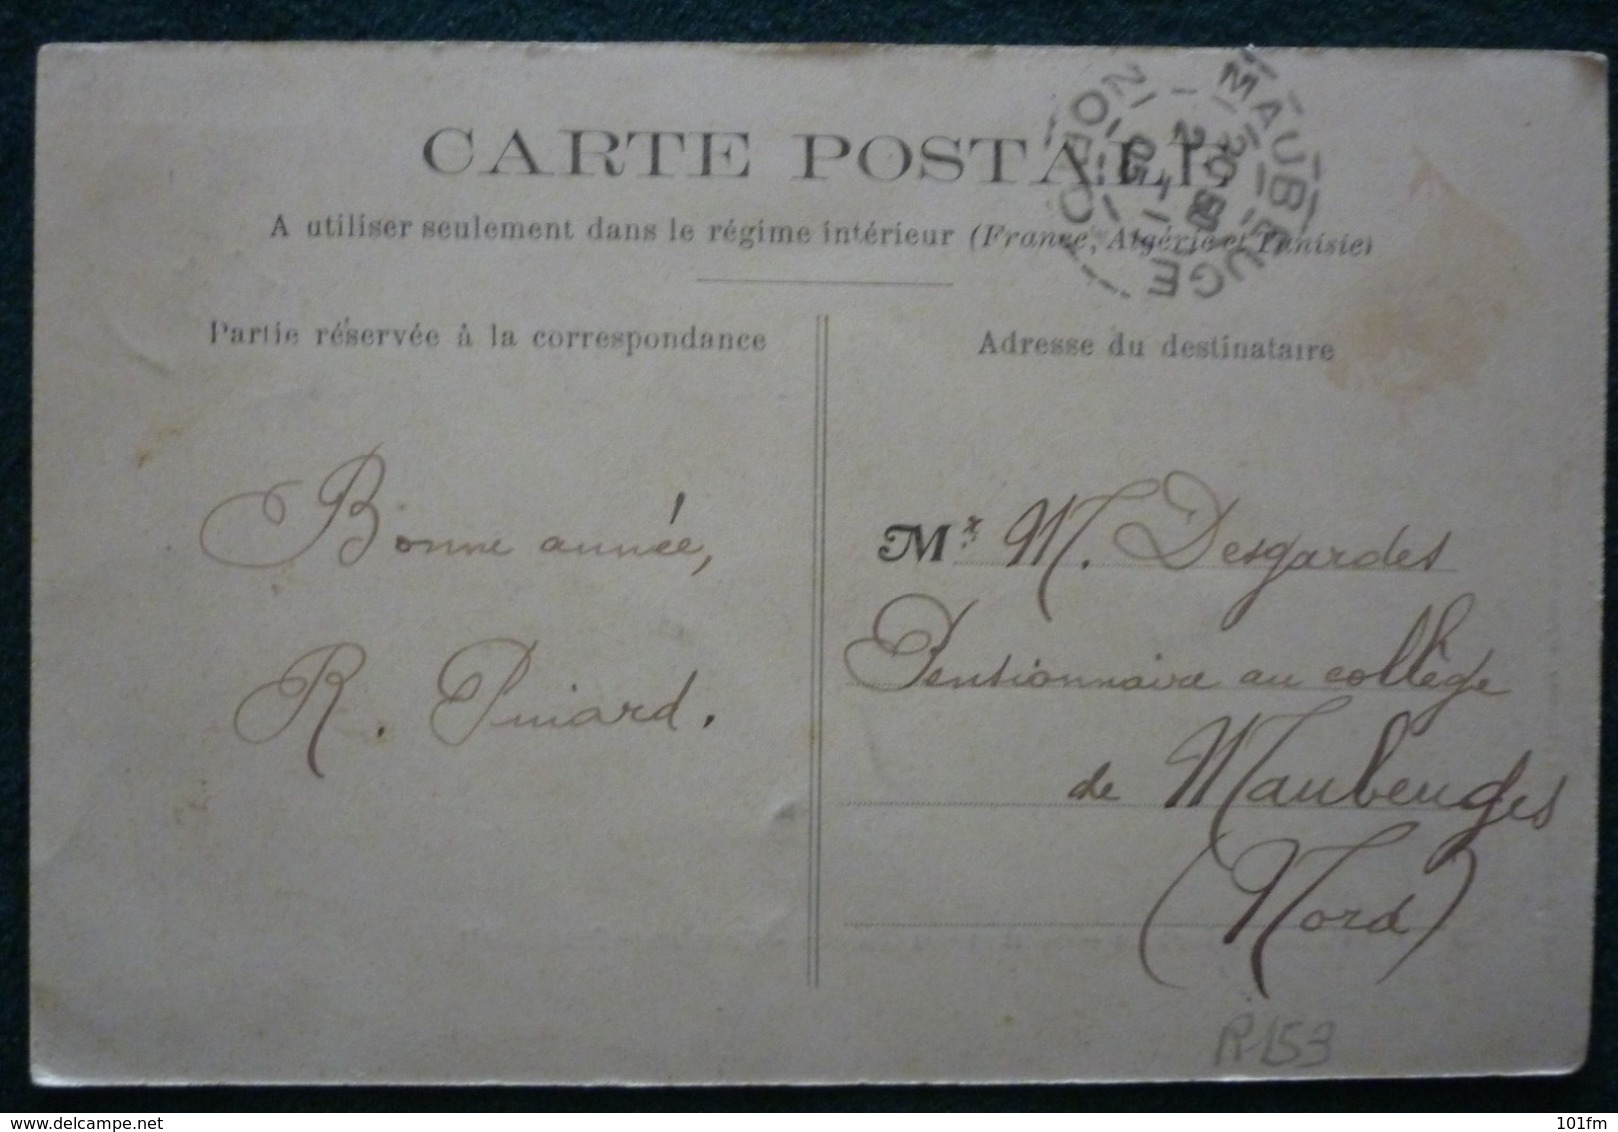 CARTE POSTALE
A utiliser seulement dans le régime intérieur (France, Algérie et Tunisie)
Partie réservée à la correspondance
Adresse du destinataire
MAUBEUGE
NORD
Bonne année,
R. Piniard.
M^r M. Desgardes
Pensionnaire au collège
de Maubeuges
(Nord)
R-153
101fm